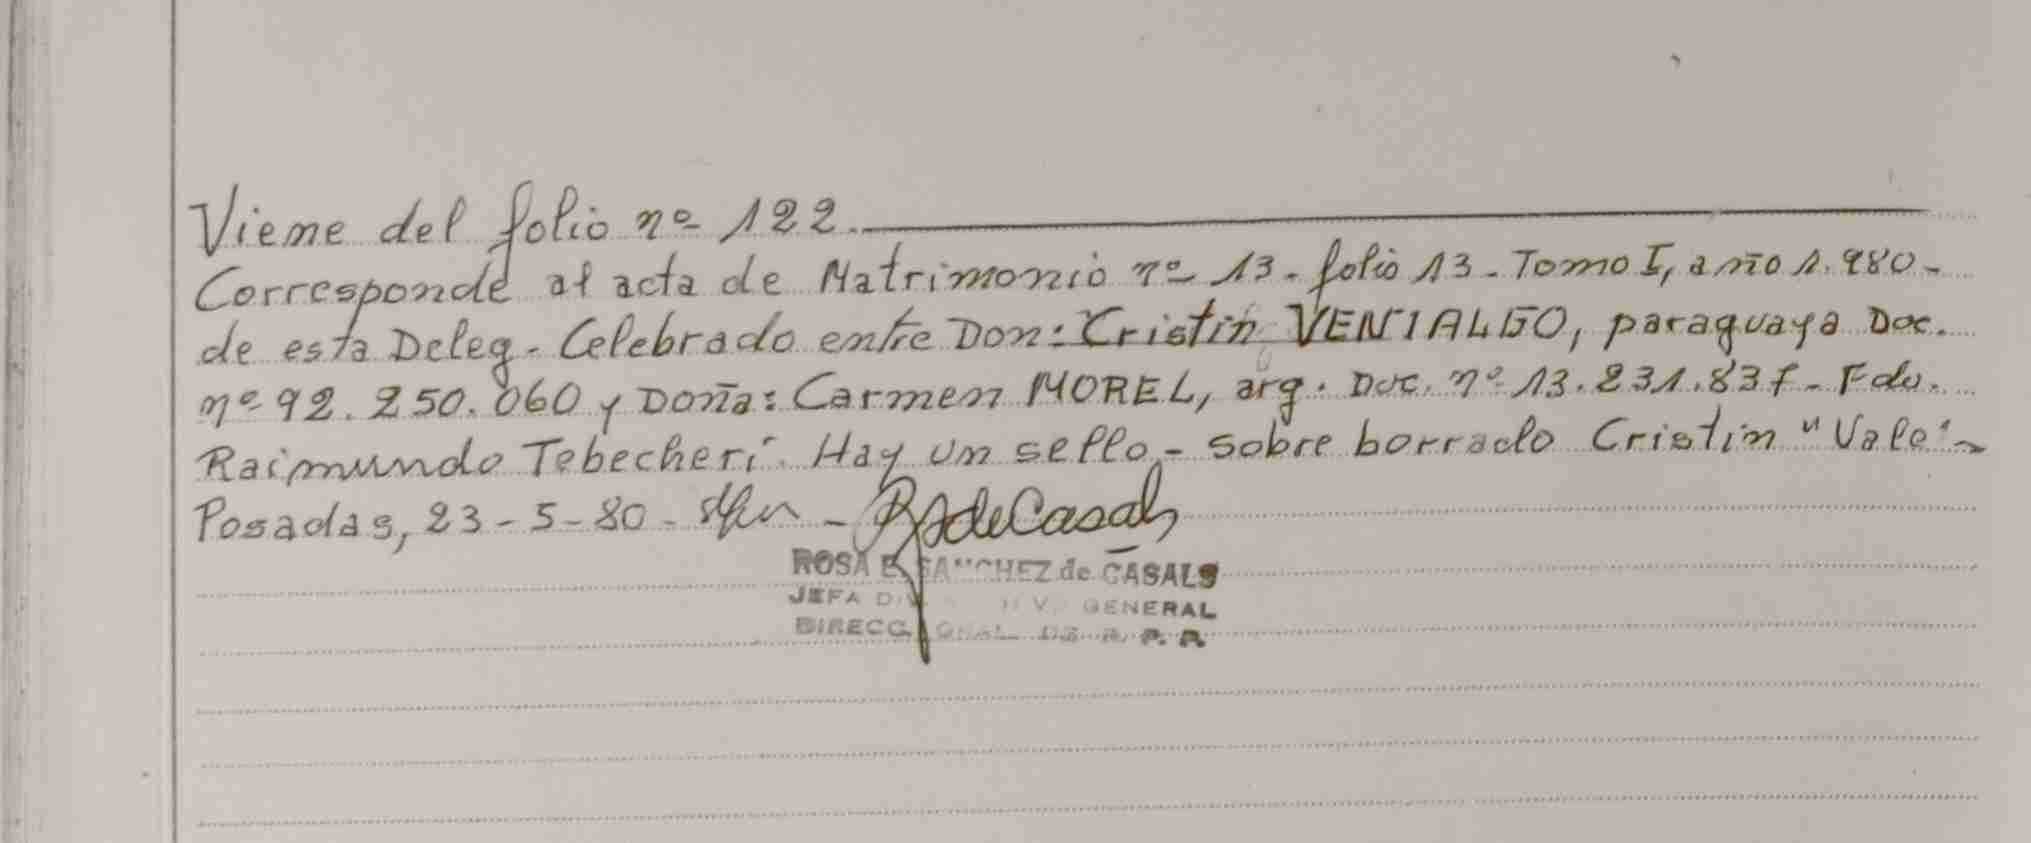 Viene del folio nº 122.
Corresponde al acta de Matrimonio nº 13 - folio 13 - Tomo I, año 1.980 -
de esta Deleg. Celebrado entre Don: Cristin VENIALGO, paraguaya Doc.
nº 92.250.060 y Doña: Carmen MOREL, arg. Doc. nº 13.231.837 - Fdo.
Raimundo Tebecheri. Hay un sello - sobre borrado Cristin "Vale" -
Posadas, 23-5-80 -
ROSA E. SANCHEZ de CASALS
JEFA GENERAL
DIRECC. DE R. P. P.